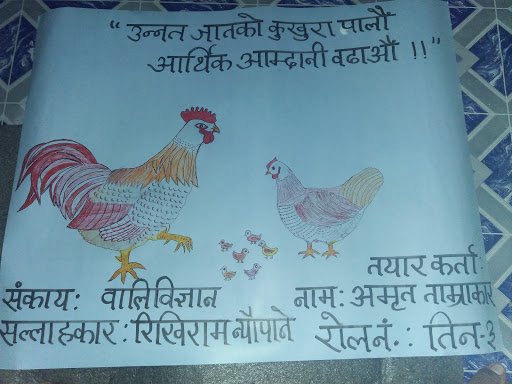 “ उन्नत जातको कुखुरा पालौं
आर्थिक आम्दानी वढाऔं !!”
तयार कर्ता:
संकाय: वालिविज्ञान नाम: अमृत ताम्राकार
सल्लाहकार: रिखिराम न्यौपाने रोल नं.: तिन-३